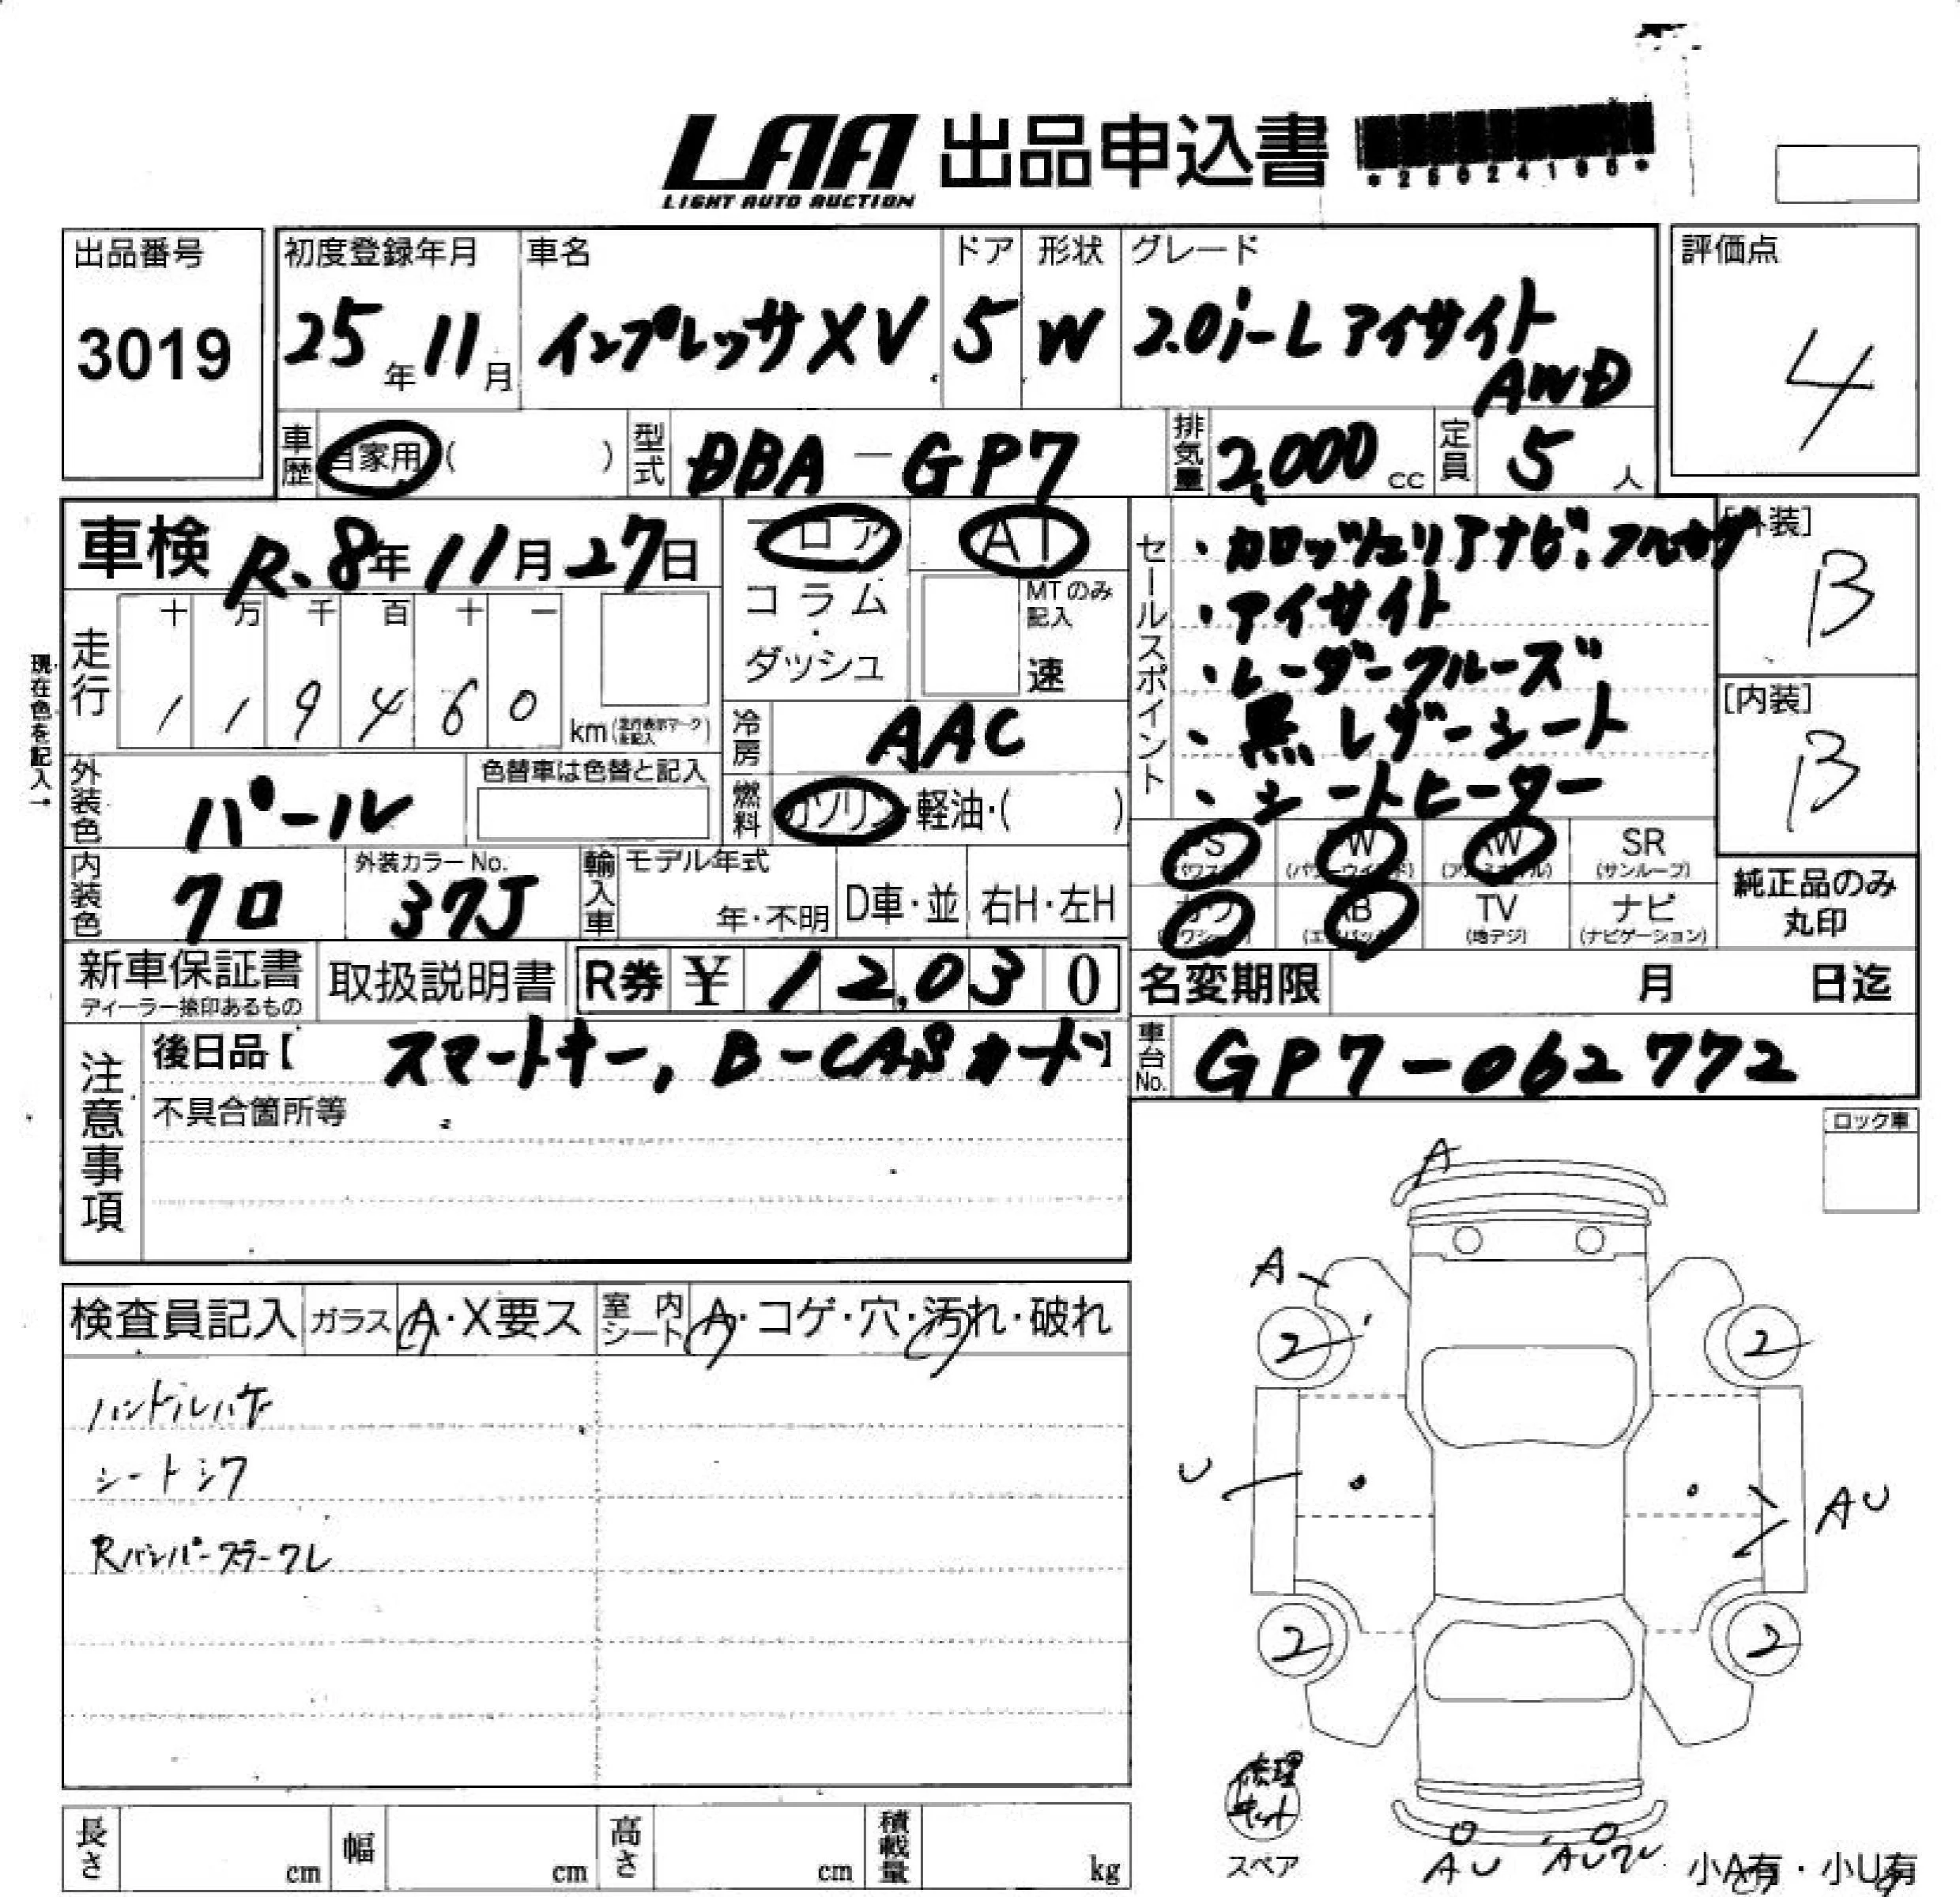 LAA 出品申込書
LIGHT AUTO AUCTION
*25024195*
出品番号
3019
初度登録年月
25年11月
車名
インプレッサXV
ドア
5
形状
W
グレード
2.0i-L アイサイト
AWD
評価点
4
車歴 自家用 ( )
型式 DBA-GP7
排気量 2,000 cc
定員 5 人
車検 R.8年11月27日
フロア
コラム・ダッシュ
AT
MTのみ記入
速
セールスポイント
・カロッツェリアナビ.フルセグ
・アイサイト
・レーダークルーズ
・黒レザーシート
・シートヒーター
[外装]
B
[内装]
B
現在色を記入→
走行
十 万 千 百 十 一
1 1 9 4 6 0
km(走行表示マーク未記入)
冷房 AAC
外装色 パール
色替車は色替と記入
燃料 ガソリン・軽油・( )
PS (パワステ)
PW (パワーウインド)
AW (アルミホイル)
SR (サンルーフ)
カワ (カワシート)
AB (エアバック)
TV (地デジ)
ナビ (ナビゲーション)
純正品のみ丸印
内装色 クロ
外装カラーNo.
37J
輸入車
モデル年式
年・不明
D車・並
右H・左H
新車保証書
ディーラー捺印あるもの
取扱説明書
R券 ¥ 12,030
名変期限 月 日迄
注意事項
後日品【 スマートキー, B-CASカード】
不具合箇所等
車台No. GP7-062772
ロック車
検査員記入
ガラス A・X要ス
室内シート A・コゲ・穴・汚れ・破れ
ハンドルハゲ
シートシワ
Rバンパーステークレ
A
A
2
2
U
AU
2
2
修理キット
スペア
AU
AUクレ
小A有・小U有
長さ cm
幅 cm
高さ cm
積載量 kg